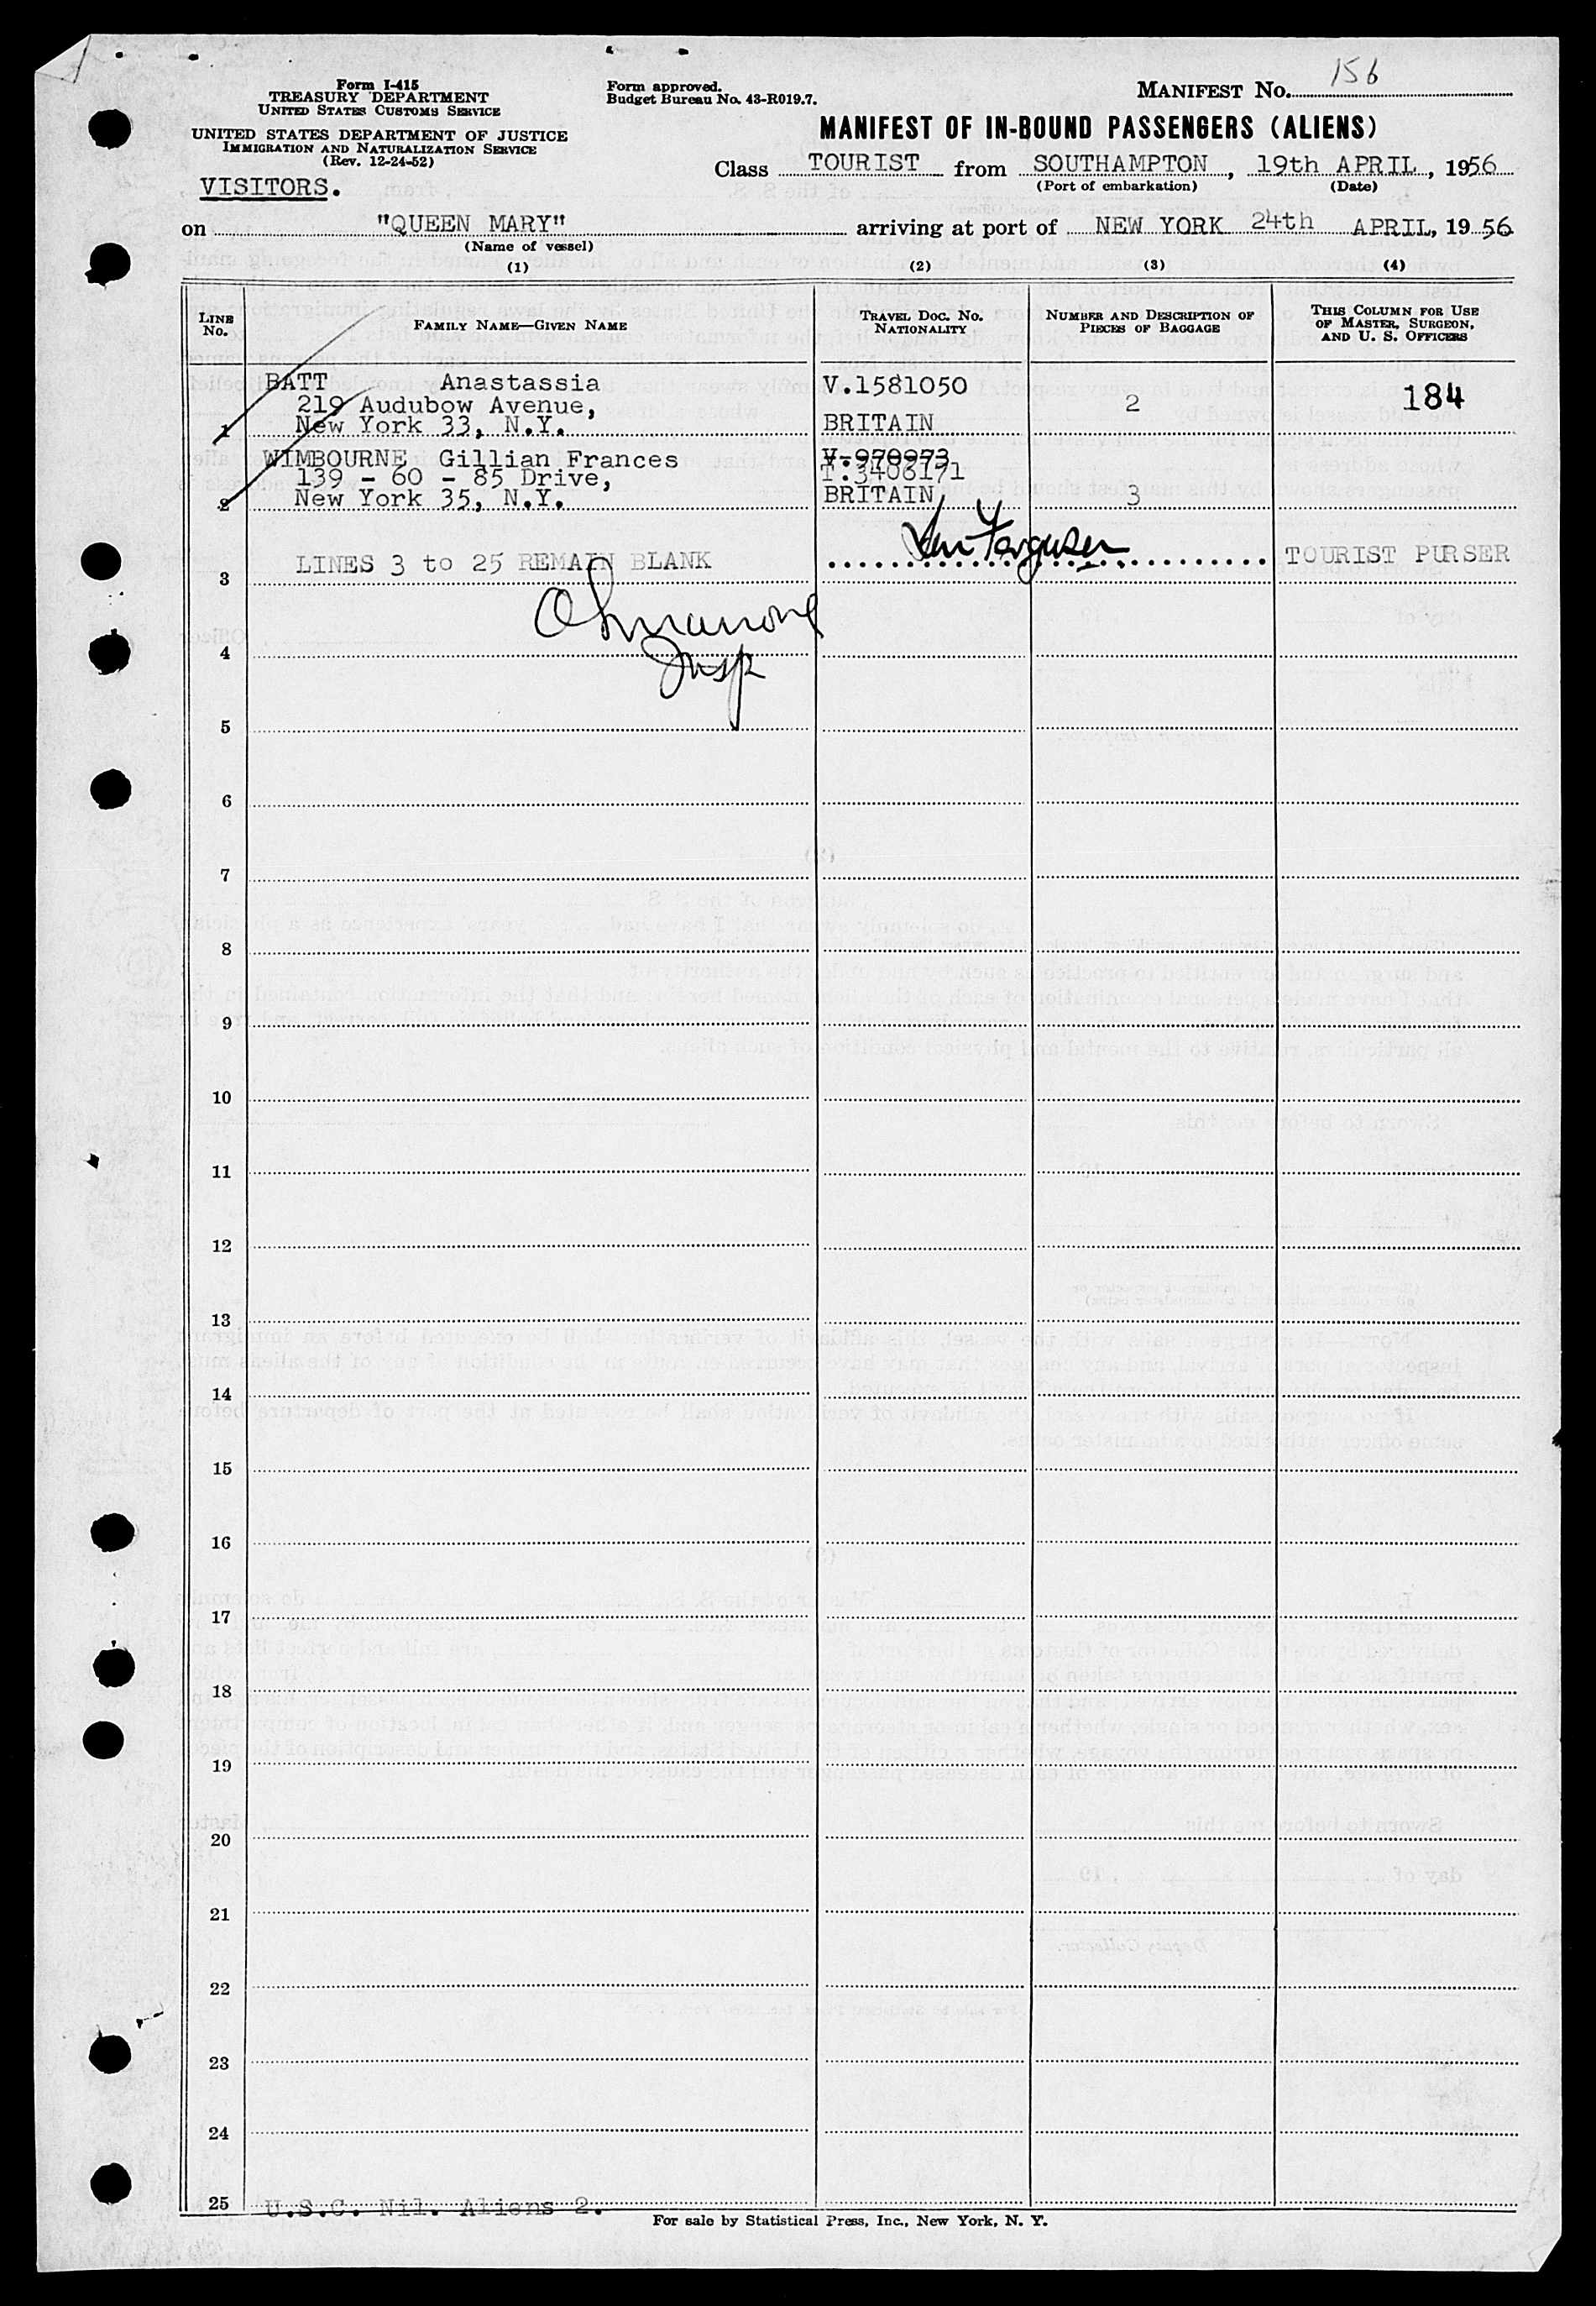 Form I-415
TREASURY DEPARTMENT
UNITED STATES CUSTOMS SERVICE
UNITED STATES DEPARTMENT OF JUSTICE
IMMIGRATION AND NATURALIZATION SERVICE
(Rev. 12-24-52)
VISITORS.
Form approved.
Budget Bureau No. 43-R019.7.
MANIFEST No. 156
MANIFEST OF IN-BOUND PASSENGERS (ALIENS)
Class TOURIST from SOUTHAMPTON, 19th APRIL, 1956
(Port of embarkation) (Date)
on "QUEEN MARY" arriving at port of NEW YORK 24th APRIL, 1956
(Name of vessel)
(1) (2) (3) (4)
LINE No. FAMILY NAME—GIVEN NAME TRAVEL DOC. No. NATIONALITY NUMBER AND DESCRIPTION OF PIECES OF BAGGAGE THIS COLUMN FOR USE OF MASTER, SURGEON, AND U. S. OFFICERS
BATT Anastassia V.1581050
219 Audubow Avenue, 2 184
1 New York 33, N.Y. BRITAIN
WIMBOURNE Gillian Frances V.970973
139 - 60 - 85 Drive, T.3406171
2 New York 35, N.Y. BRITAIN 3
LINES 3 to 25 REMAIN BLANK Ferguson TOURIST PURSER
3
4 Insp
5
6
7
8
9
10
11
12
13
14
15
16
17
18
19
20
21
22
23
24
25 U.S.C. Nil. Aliens 2.
For sale by Statistical Press, Inc., New York, N. Y.